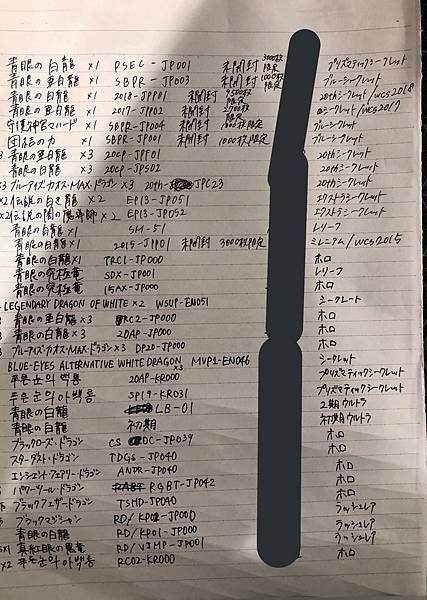 青眼の白龍 ×1 PSEC-JP001 未開封 3000枚限定 プリズマティックシークレット
青眼の亜白龍 ×1 SBPR-JP003 未開封 1000枚限定 ブルーシークレット
青眼の白龍 ×1 2018-JPP01 未開封 限定 20thシークレット/WCS2018
青眼の亜白龍 ×1 2017-JPP02 未開封 限定 シークレット/WCS2017
守護神官マハード ×1 SBPR-JP004 未開封 1000枚限定 ブルーシークレット
団結の力 ×1 SBPR-JP001 未開封 1000枚限定 ブルーシークレット
青眼の亜白龍 ×3 20CP-JPF01 20thシークレット
青眼の白龍 ×3 20CP-JPS02 20thシークレット
ブルーアイズ・カオス・MAX・ドラゴン ×3 20th-JPC23 20thシークレット
×2 伝説の白き龍 ×2 EP13-JP051 エクストラシークレット
×2 伝説の闇の魔導師 ×2 EP13-JP052 エクストラシークレット
青眼の白龍 ×1 SM-51 レリーフ
青眼の白龍 ×1 2015-JPP01 未開封 3000枚限定 ミレニアム/WCS2015
青眼の白龍 ×1 TRC1-JP000 ホロ
青眼の究極竜 SDX-JP001 レリーフ
青眼の究極竜 15AX-JP000 ホロ
LEGENDARY DRAGON OF WHITE ×2 WSUP-EN051 シークレート
青眼の亜白龍 ×3 RC2-JP000 ホロ
青眼の白龍 ×3 20AP-JP000 ホロ
ブルーアイズ・カオス・MAX・ドラゴン ×3 DP20-JP000 ホロ
BLUE-EYES ALTERNATIVE WHITE DRAGON ×3 MVP1-EN046 シークレット
푸른 눈의 백룡 20AP-KR000 プリズマティックシークレット
푸른 눈의 아백룡 SP19-KR031 プリズマティックシークレット
青眼の白龍 LB-01 2期ウルトラ
青眼の白龍 初期 初期ウルトラ
ブラックローズ・ドラゴン CSOC-JP039 ホロ
スターダスト・ドラゴン TDGS-JP040 ホロ
エンシェント・フェアリー・ドラゴン ANPR-JP040 ホロ
パワーツール・ドラゴン RGBT-JP042 ホロ
ブラックフェザー・ドラゴン TSHD-JP040 ホロ
ブラックマジシャン RD/KP01-JP000 ラッシュレア
青眼の白龍 RD/KP01-JP000 ラッシュレア
×1 真紅眼の黒竜 RD/VJMP-JP001 ラッシュレア
×2 푸른 눈의 아백룡 RC02-KR000 ホロ